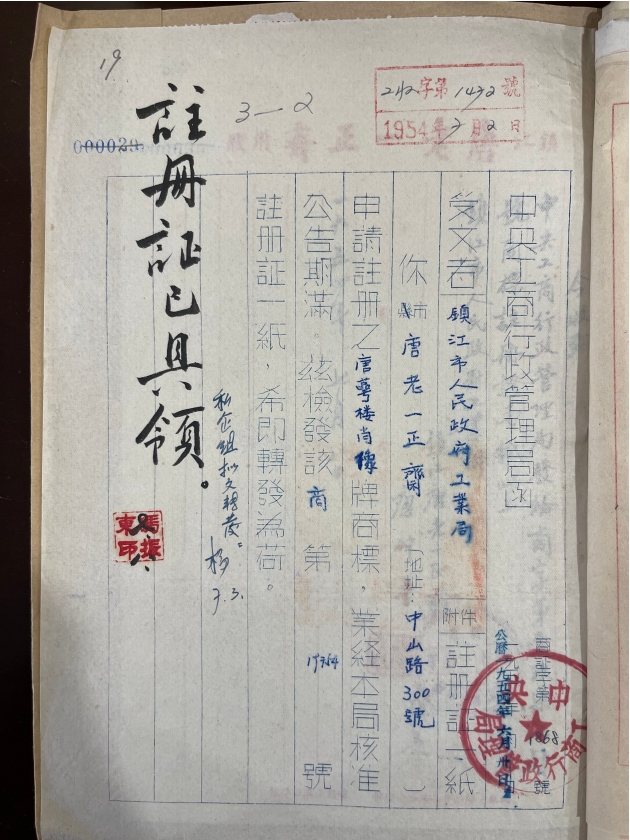 19
3—2
242字第1432號
1954年7月2日
中央工商行政管理局函
商証字第1868號
公曆一九五四年六月卅日
受文者 鎮江市人民政府工業局 附件 註册証一紙
你市縣唐老一正齋(地址:中山路300號)
申請註册之唐萼楼肖像牌商標,業経本局核准
公告期滿。茲檢發該商第17364號
註册証一紙,希即轉發為荷。
私企組拟文轉發。
楊 7.3.
註冊証已具領。
馮振東印